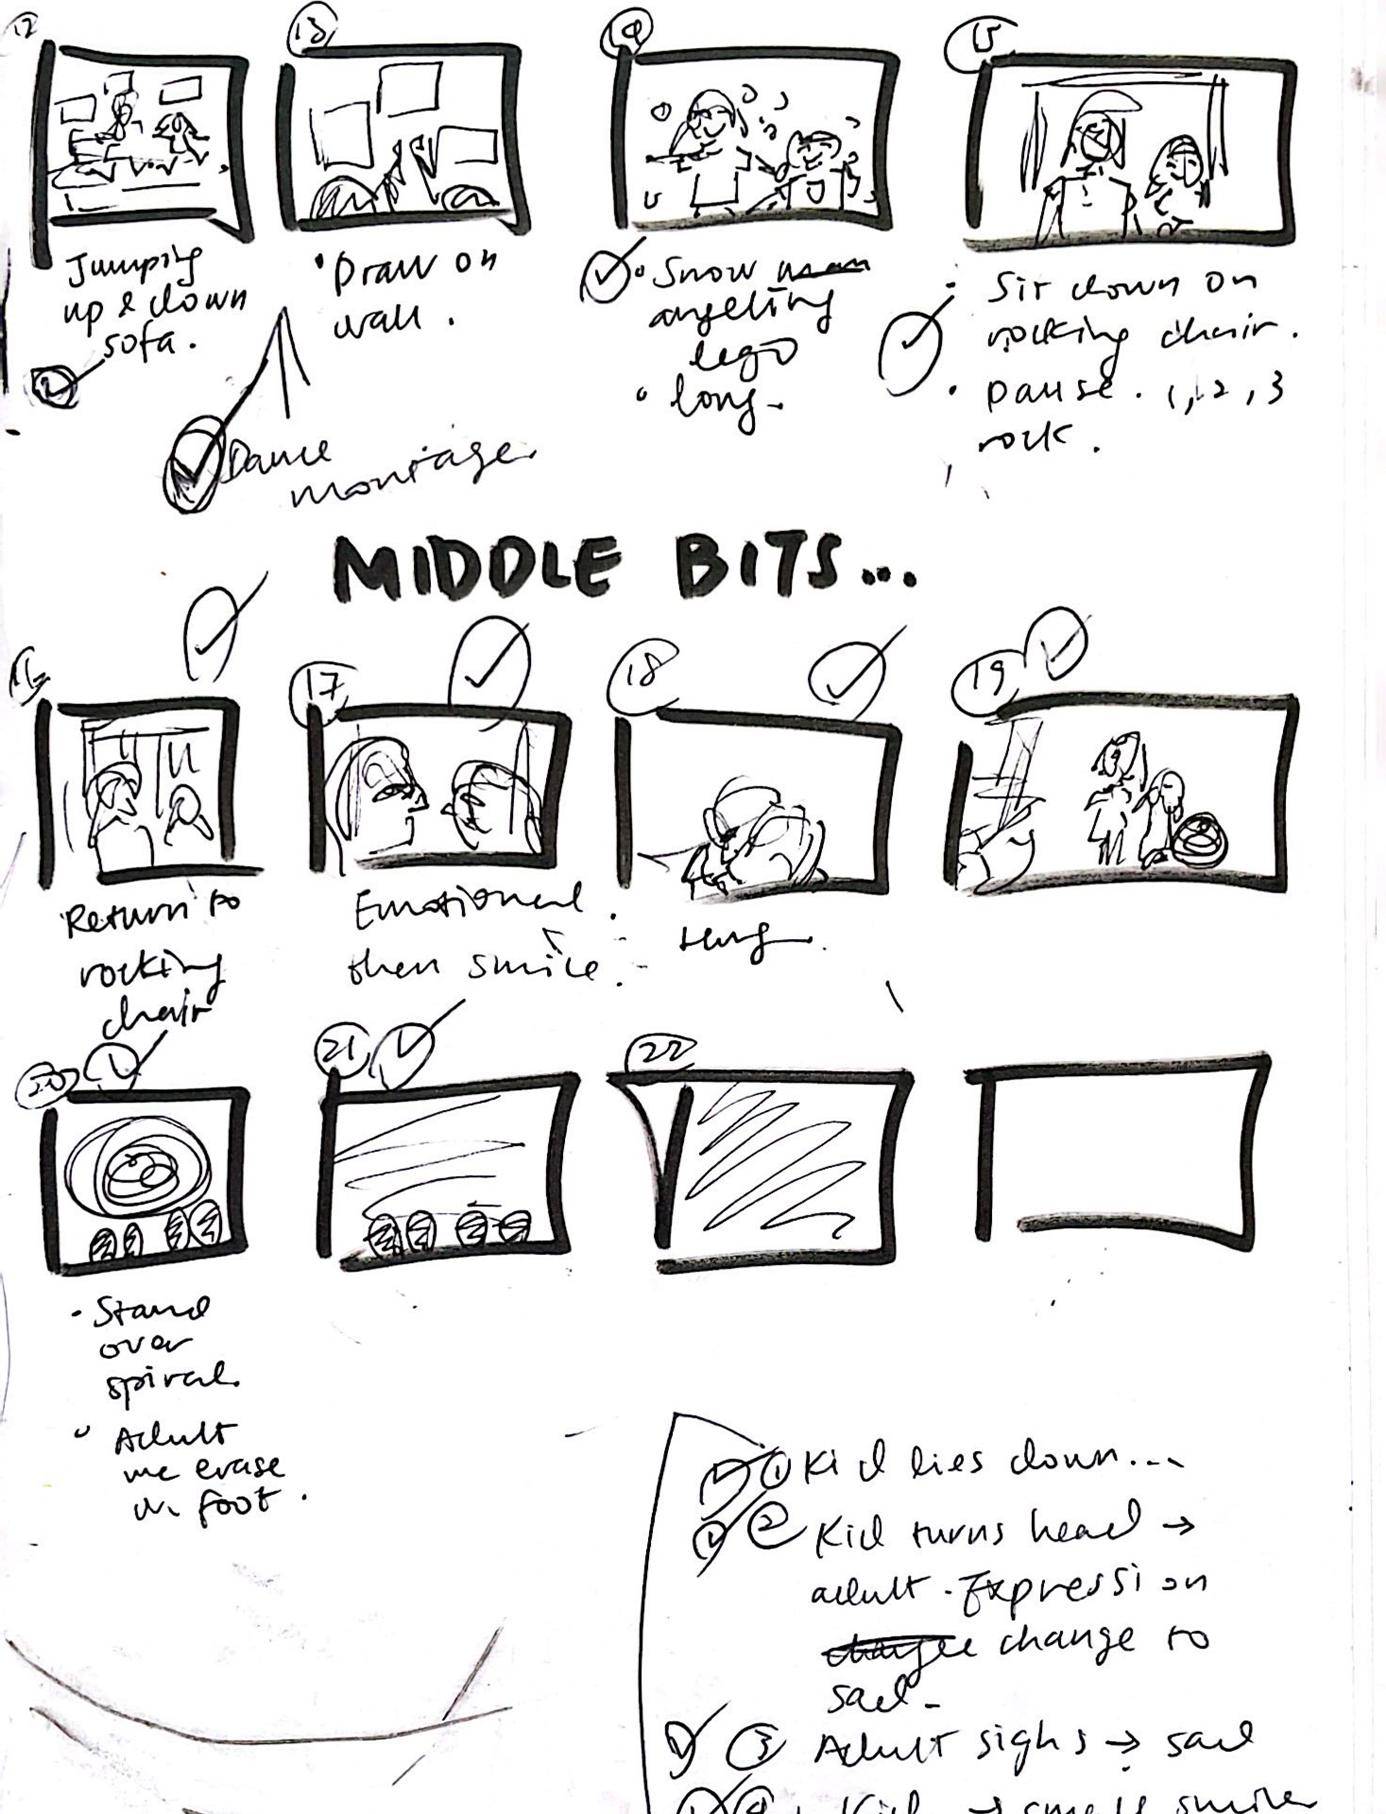 12
13
14
15
Jumping
up & down
sofa.
• Draw on
wall.
Dance
montage.
• Snow man
angeling
lego
• long.
• Sit down on
rocking chair.
• pause. 1, 2, 3
rock.
MIDDLE BITS...
16
17
18
19
Return to
rocking
chair
Emotional.
then smile.
Hug.
20
21
22
• Stand
over
spiral.
• Adult
me erase
w. foot.
① Kid lies down...
② Kid turns head →
adult. Expression
change to
sad.
③ Adult sighs → sad
④ Kid → small smile